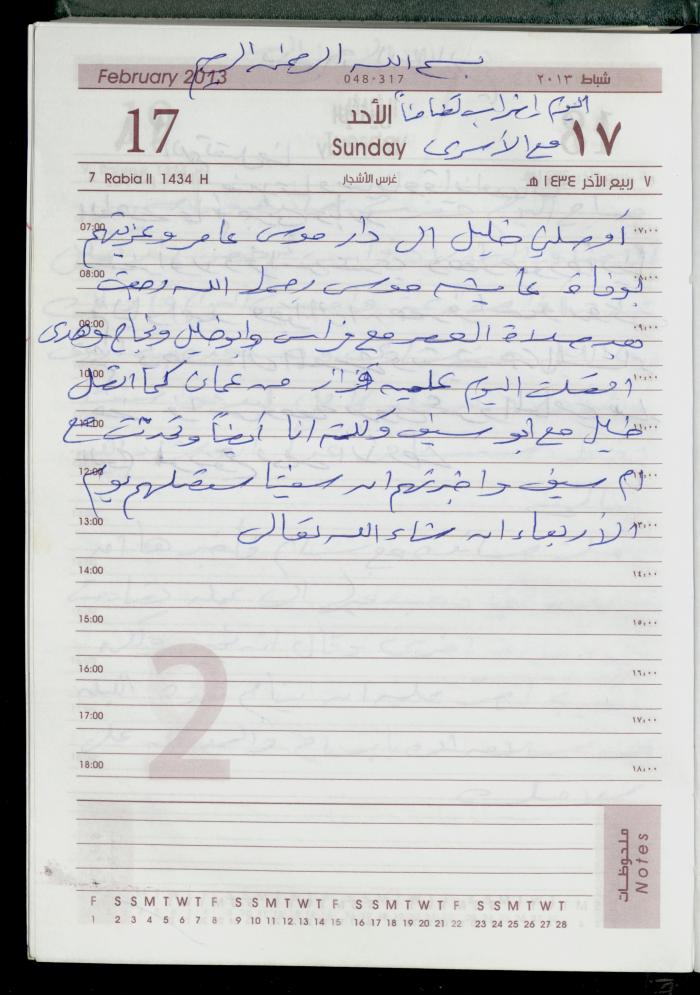 بسم الله الرحمن الرحيم
February 2013 048-317 شباط ٢٠١٣
اليوم إضراب تضامناً
17 الأحد ١٧
Sunday مع الأسرى
7 Rabia II 1434 H غرس الأشجار ٧ ربيع الآخر ١٤٣٤ هـ
07:00 أوصلني خليل الى دار موسى عامر وعزيتهم ٠٧:٠٠
08:00 بوفاة عايشه موسى رحمها الله رجعت ٠٨:٠٠
09:00 بعد صلاة العصر مع فراس وابو خليل ونجاح وهدى ٠٩:٠٠
10:00 اتصلت اليوم علميه فواز من عمان كما اتصل ١٠:٠٠
11:00 خليل مع ابو سيف وكلمته انا أيضاً وتحدثت مع ١١:٠٠
12:00 ام سيف واخبرتهم ان سفينا ستصلهم يوم ١٢:٠٠
13:00 الأربعاء ان شاء الله تعالى ١٣:٠٠
14:00 ١٤:٠٠
15:00 ١٥:٠٠
16:00 ١٦:٠٠
17:00 ١٧:٠٠
18:00 ١٨:٠٠
2
ملحوظات Notes
F S S M T W T F S S M T W T F S S M T W T F S S M T W T
1 2 3 4 5 6 7 8 9 10 11 12 13 14 15 16 17 18 19 20 21 22 23 24 25 26 27 28